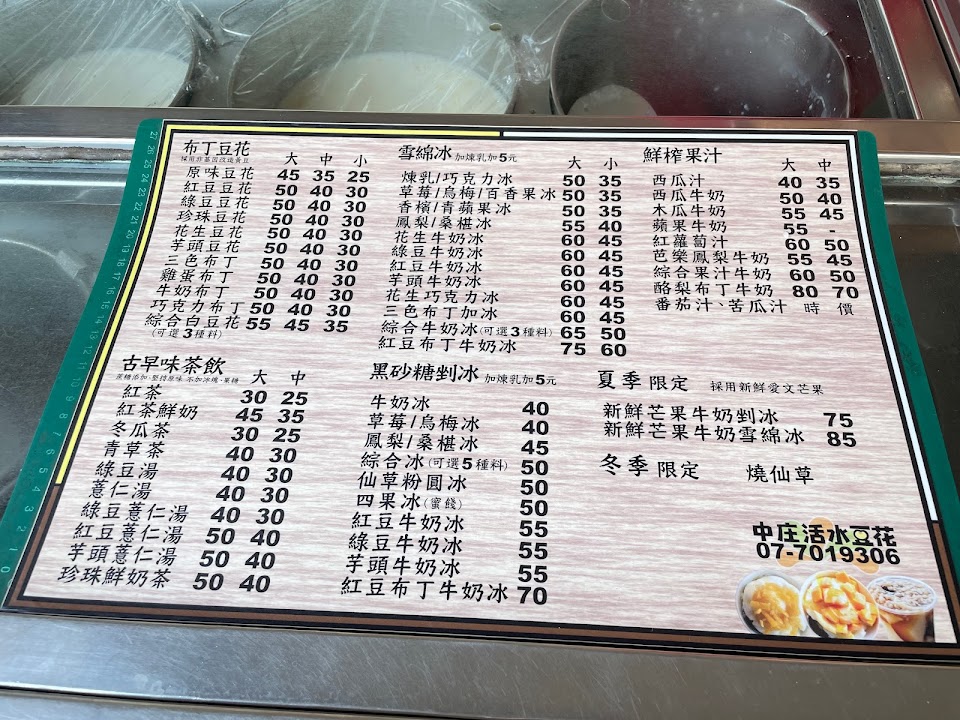 布丁豆花 大 中 小
採用非基因改造黃豆
原味豆花 45 35 25
紅豆豆花 50 40 30
綠豆豆花 50 40 30
珍珠豆花 50 40 30
花生豆花 50 40 30
芋頭豆花 50 40 30
三色布丁 50 40 30
雞蛋布丁 50 40 30
牛奶布丁 50 40 30
巧克力布丁 50 40 30
綜合白豆花 55 45 35
(可選3種料)
古早味茶飲 大 中
蔗糖添加·堅持原味 不加冰塊·果糖
紅茶 30 25
紅茶鮮奶 45 35
冬瓜茶 30 25
青草茶 40 30
綠豆湯 40 30
薏仁湯 40 30
綠豆薏仁湯 40 30
紅豆薏仁湯 50 40
芋頭薏仁湯 50 40
珍珠鮮奶茶 50 40
雪綿冰 加煉乳加5元 大 中
煉乳/巧克力冰 50 35
草莓/烏梅/百香果冰 50 35
香檳/青蘋果冰 50 35
鳳梨/桑椹冰 55 40
花生牛奶冰 60 45
綠豆牛奶冰 60 45
紅豆牛奶冰 60 45
芋頭牛奶冰 60 45
花生巧克力冰 60 45
三色布丁加冰 60 45
綜合牛奶冰(可選3種料) 65 50
紅豆布丁牛奶冰 75 60
黑砂糖剉冰 加煉乳加5元
牛奶冰 40
草莓/烏梅冰 40
鳳梨/桑椹冰 45
綜合冰(可選5種料) 50
仙草粉圓冰 50
四果冰(蜜餞) 50
紅豆牛奶冰 55
綠豆牛奶冰 55
芋頭牛奶冰 55
紅豆布丁牛奶冰 70
鮮榨果汁 大 中
西瓜汁 40 35
西瓜牛奶 50 40
木瓜牛奶 55 45
蘋果牛奶 55 -
紅蘿蔔汁 60 50
芭樂鳳梨牛奶 55 45
綜合果汁牛奶 60 50
酪梨布丁牛奶 80 70
番茄汁、苦瓜汁 時價
夏季限定 採用新鮮愛文芒果
新鮮芒果牛奶剉冰 75
新鮮芒果牛奶雪綿冰 85
冬季限定 燒仙草
中庄活水豆花
07-7019306